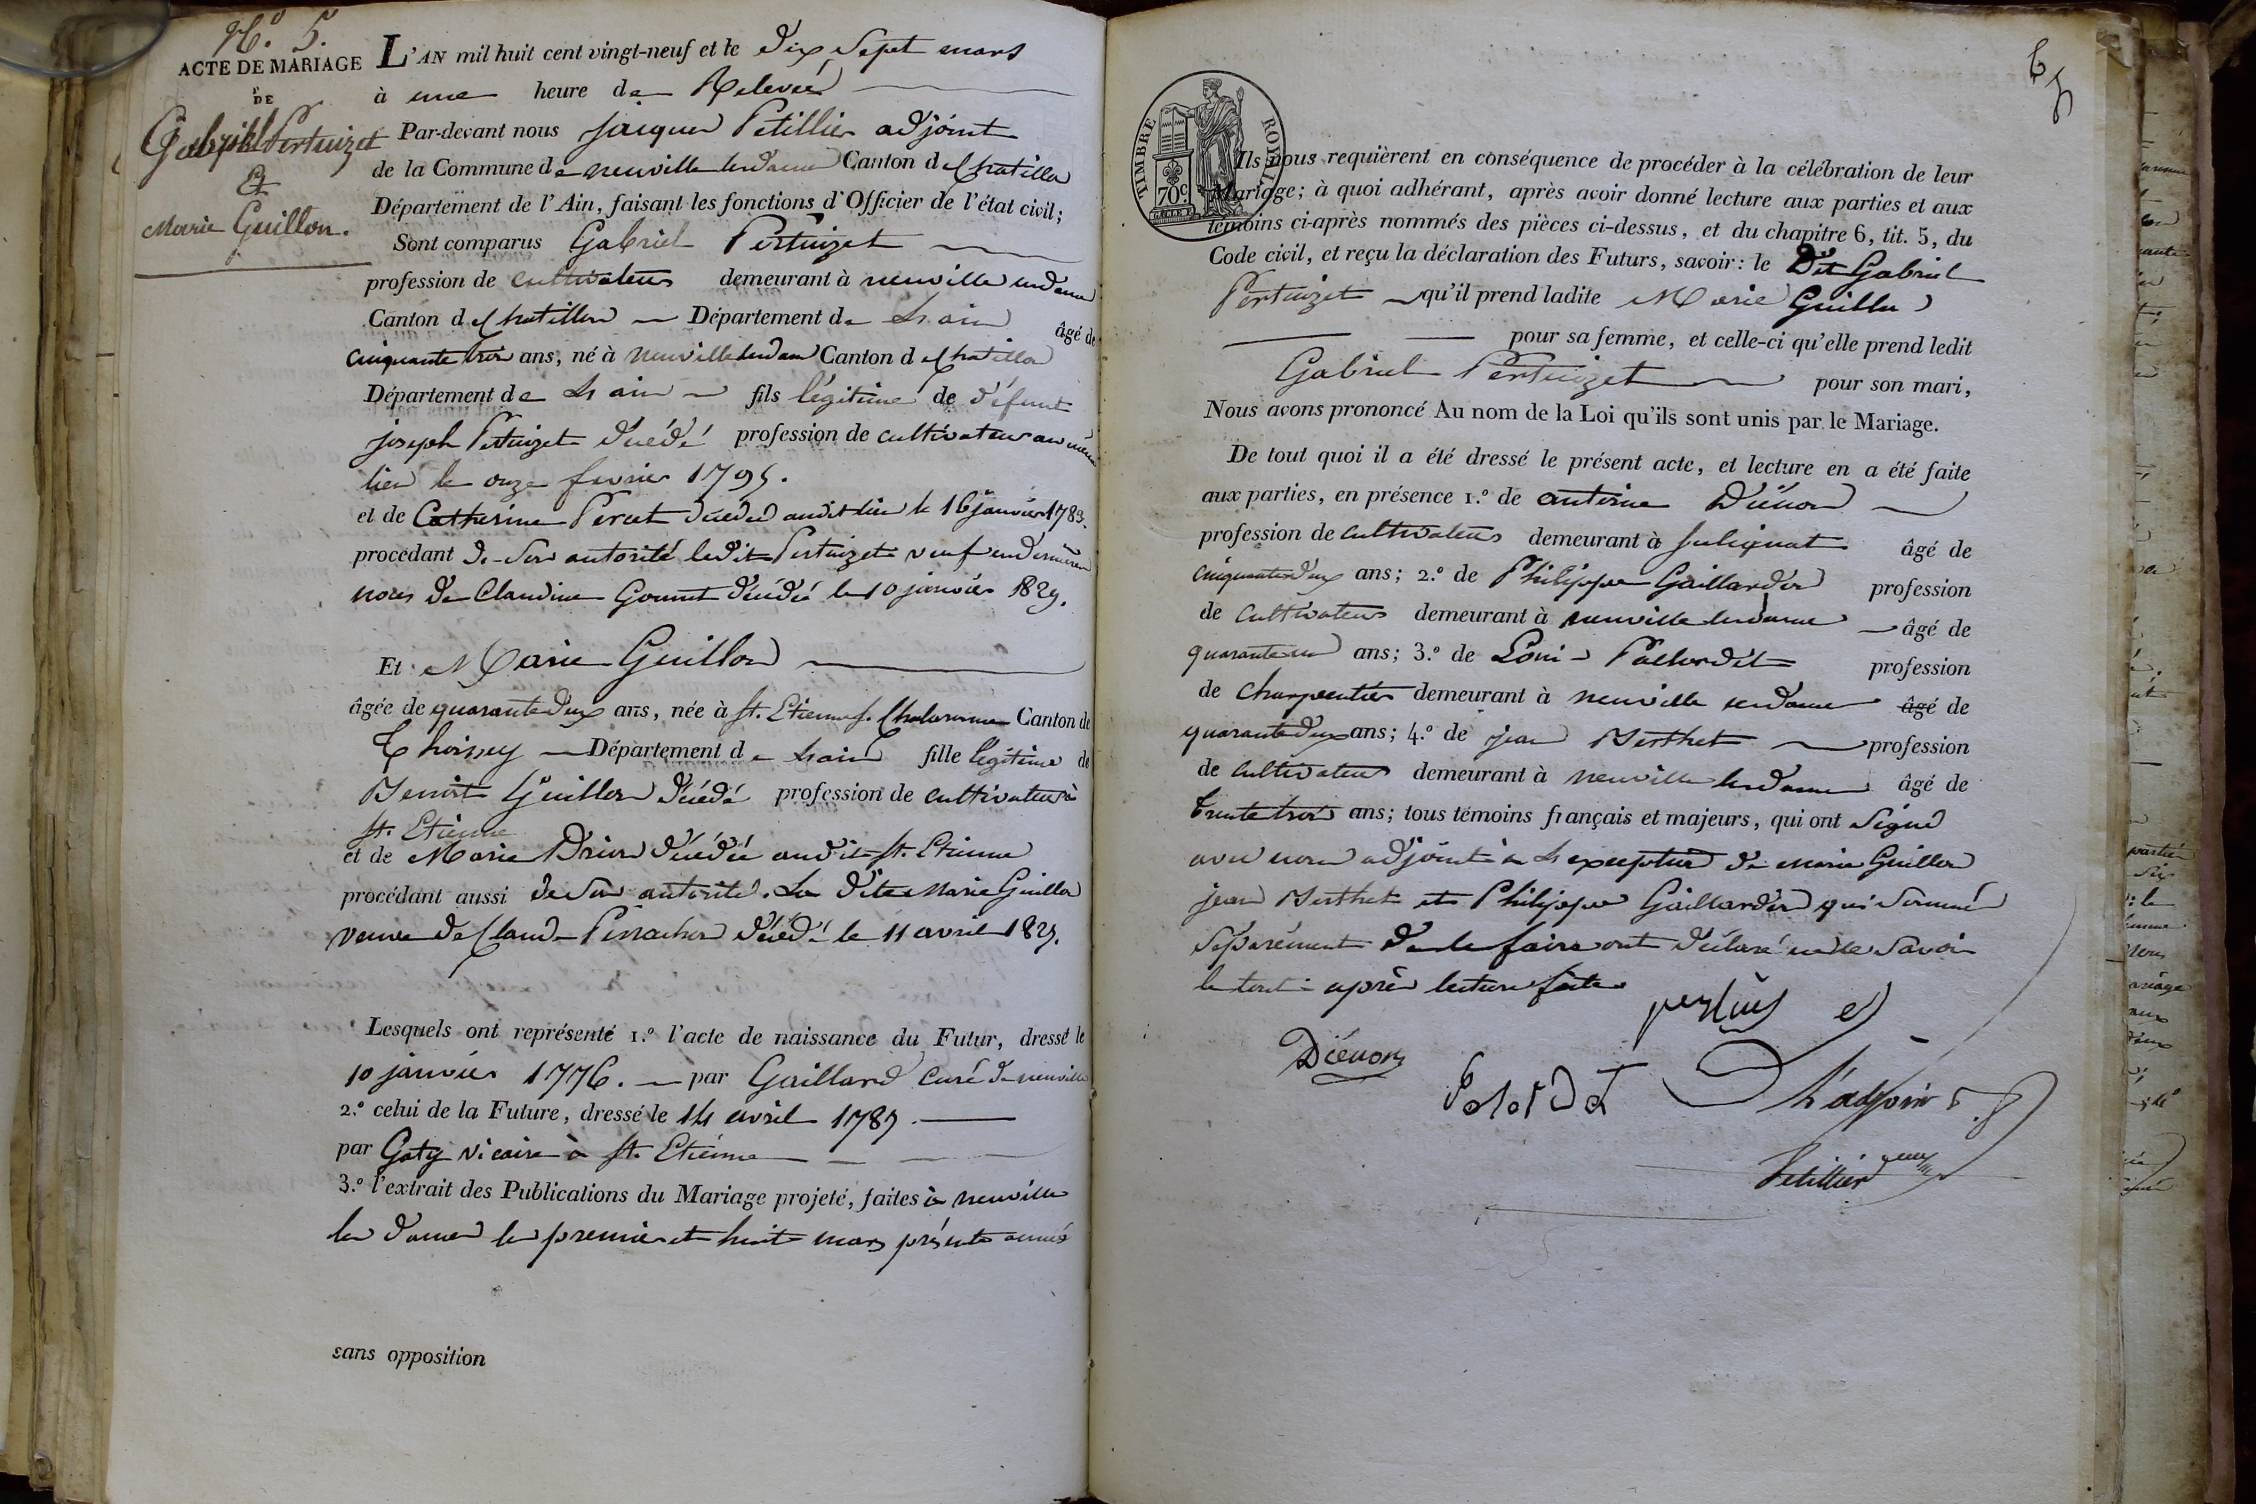 N.o 5.
ACTE DE MARIAGE
DE
Gabriel Pertuizet
Et
Marie Guillon.
L'AN mil huit cent vingt-neuf et le dix Sept mars
à une heure de Relevée
Par-devant nous jacques Petillier adjoint
de la Commune de neuville les dames Canton de Chatillon
Département de l'Ain, faisant les fonctions d'Officier de l'état civil;
Sont comparus Gabriel Pertuizet
profession de cultivateur demeurant à neuville les dames
Canton de Chatillon Département de L'ain âgé de
cinquante trois ans, né à neuville les dam Canton de Chatillon
Département de L'ain fils légitime de défunt
joseph Pertuizet décédé profession de cultivateur au même
lieu le onze fevrier 1795.
et de Catherine Percet décédée audit lieu le 16 janvier 1783.
procédant de Son autorité ledit Pertuizet veuf en dernieres
noces de Claudine Gounet décédée le 10 janvier 1829.
Et Marie Guillon
âgée de quarante deux ans, née à St. Etienne s. Chalaronne Canton de
Thoissey Département de L'ain fille légitime de
Benoit Guillon décédé profession de cultivateur à
St. Etienne
et de Marie Drion décédée audit St. Etienne
procédant aussi de Son autorité. La dite Marie Guillon
veuve de Claude Perrachon décédé le 11 avril 1827.
Lesquels ont représenté 1.o l'acte de naissance du Futur, dressé le
10 janvier 1776. par Gaillard Curé de neuville
2.o celui de la Future, dressé le 14 avril 1787.
par Gaty vicaire à St. Etienne
3.o l'extrait des Publications du Mariage projeté, faites à neuville
les dames les premier et huit mars présente année
sans opposition
TIMBRE ROYAL
70c
Ils nous requièrent en conséquence de procéder à la célébration de leur
Mariage; à quoi adhérant, après avoir donné lecture aux parties et aux
témoins ci-après nommés des pièces ci-dessus, et du chapitre 6, tit. 5, du
Code civil, et reçu la déclaration des Futurs, savoir: le Dit Gabriel
Pertuizet qu'il prend ladite Marie Guillon
pour sa femme, et celle-ci qu'elle prend ledit
Gabriel Pertuizet pour son mari,
Nous avons prononcé Au nom de la Loi qu'ils sont unis par le Mariage.
De tout quoi il a été dressé le présent acte, et lecture en a été faite
aux parties, en présence 1.o de antoine Diénon
profession de cultivateur demeurant à Sulignat âgé de
cinquante deux ans; 2.o de Philippe Gaillardon profession
de cultivateur demeurant à neuville les dames âgé de
quarante un ans; 3.o de Loui Pallordet profession
de charpentier demeurant à neuville les dames âgé de
quarante deux ans; 4.o de jean Berthet profession
de cultivateur demeurant à neuville les dames âgé de
trente trois ans; tous témoins français et majeurs, qui ont Signé
avec nous adjoint à L'exception de marie Guillon
jean Berthet et Philippe Gaillardon qui Sommés
Séparément de le faire ont déclaré ne le Savoir
le tout après lecture faite
Diénon
L'adjoint
Petillier